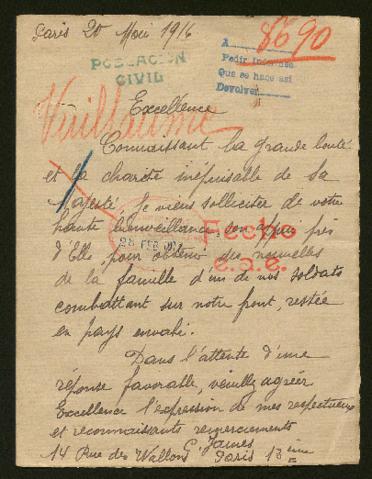 Paris 20 Mai 1916
POBLACION
CIVIL
A
8690
Pedir Informes
Que se hace así
Devolver
Excellence
Vuillaume
Connaissant la grande bonté
et la charité inépuisable de Sa
Majesté, Je viens solliciter de votre
haute bienveillance, son appui près
d'Elle pour obtenir des nouvelles
28 FEB 1917
Fecho
e.a.e.
de la famille d'un de nos soldats
combattant sur notre front, restée
en pays envahi.
Dans l'attente d'une
réponse favorable, veuillez agréer
Excellence l'expression de mes respectueux
et reconnaissants remerciements
G. James
14 Rue des Wallons Paris 13 ème